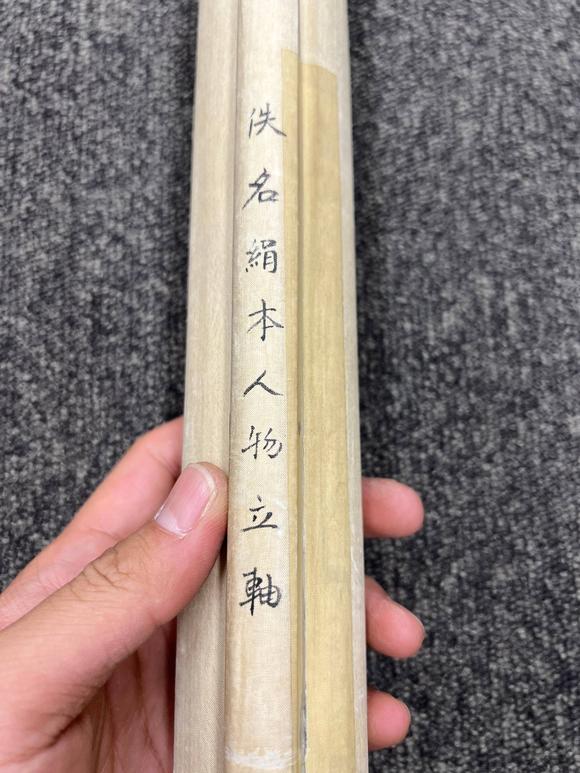 佚名絹本人物立軸